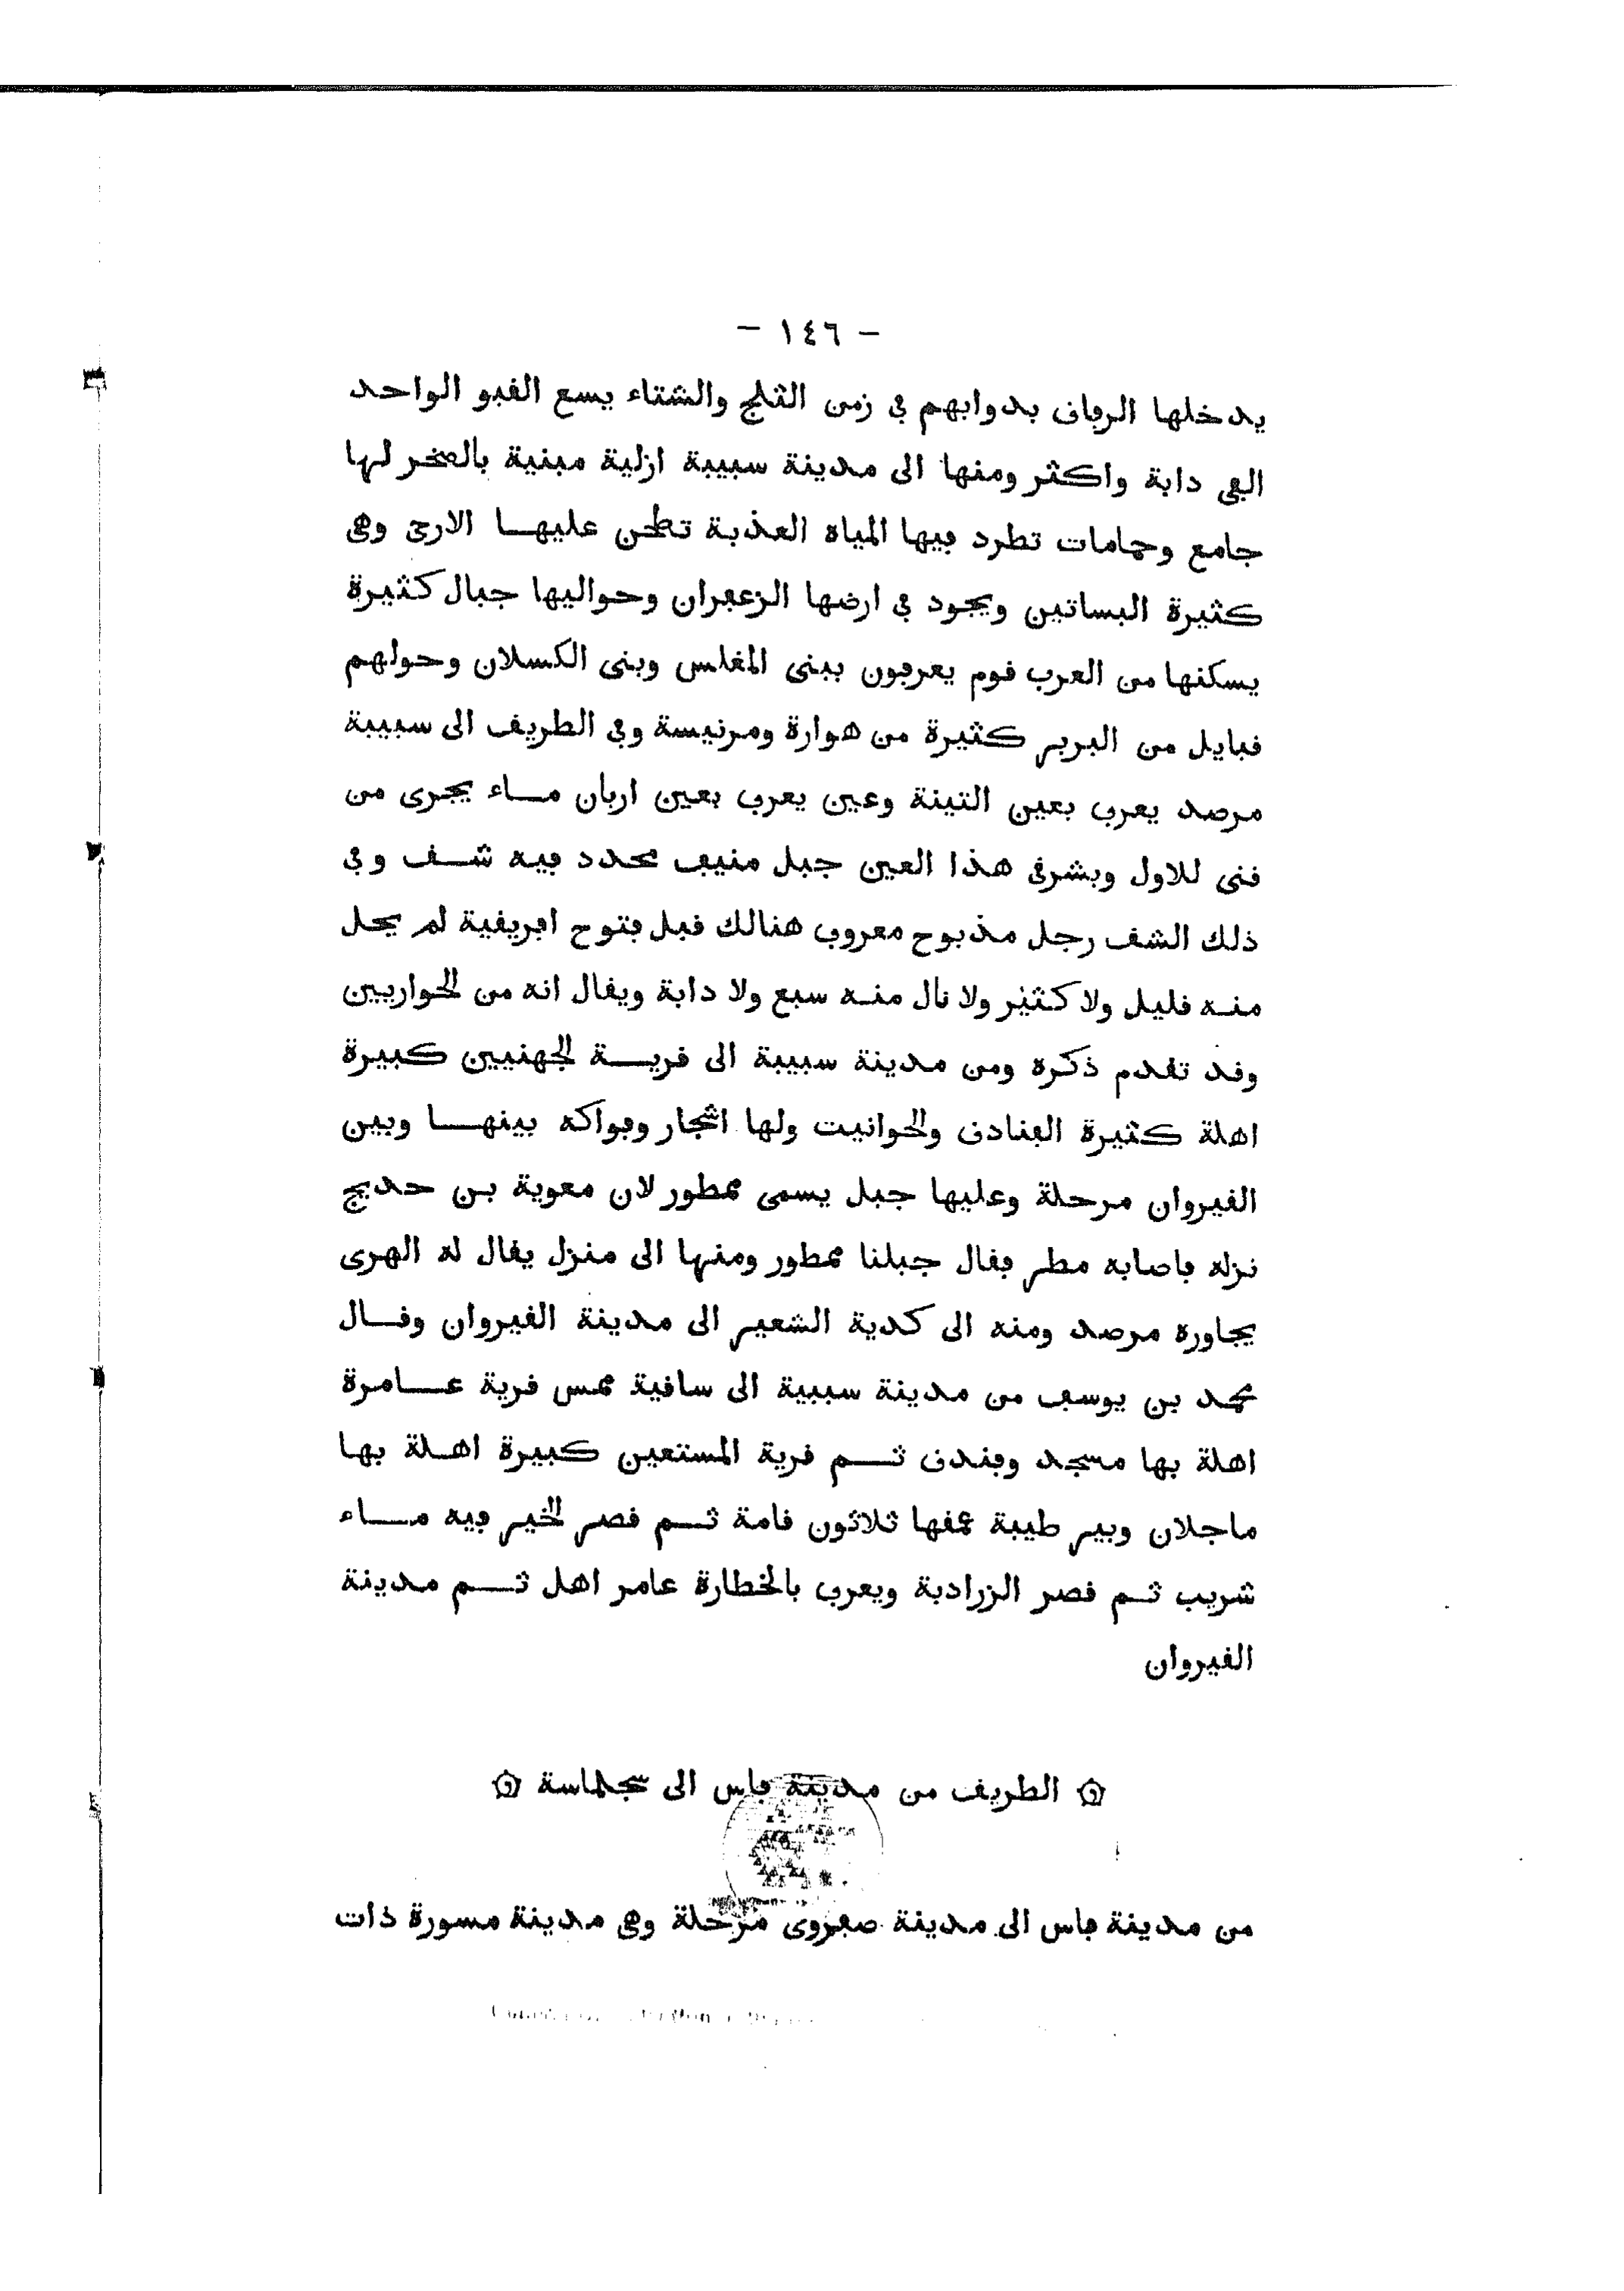 - ١٤٦ -
يدخلها الرفاق بدوابهم في زمن الثلج والشتاء يسع القبو الواحد
الفى دابة واكثر ومنها الى مدينة سبيبة ازلية مبنية بالصخر لها
جامع وحمامات تطرد فيها المياه العذبة تطحن عليها الارحى وهى
كثيرة البساتين ويجود في ارضها الزعفران وحواليها جبال كثيرة
يسكنها من العرب قوم يعرفون ببنى المغلس وبنى الكسلان وحولهم
قبايل من البربر كثيرة من هوارة ومرنيسة وفى الطريق الى سبيبة
مرصد يعرف بعين التينة وعين يعرف بعين اربان ماء يجرى من
قنى للاول وبشرقى هذا العين جبل منيف محدد فيه شق وفى
ذلك الشق رجل مذبوح معروف هنالك قبل فتوح افريقية لم يحل
منه قليل ولا كثير ولا نال منه سبع ولا دابة ويقال انه من الحواريين
وقد تقدم ذكره ومن مدينة سبيبة الى قرية الجهنيين كبيرة
اهلة كثيرة الفنادق والحوانيت ولها اشجار وفواكه بينها وبين
القيروان مرحلة وعليها جبل يسمى ممطور لان معوية بن حديج
نزله فاصابه مطر فقال جبلنا ممطور ومنها الى منزل يقال له الهرى
يجاوره مرصد ومنه الى كدية الشعير الى مدينة القيروان وقال
محمد بن يوسف من مدينة سبيبة الى ساقية ممس قرية عامرة
اهلة بها مسجد وفندق ثم قرية المستعين كبيرة اهلة بها
ماجلان وبير طيبة عمقها ثلاثون قامة ثم قصر الخير فيه ماء
شريب ثم قصر الزرادبة ويعرف بالخطارة عامر اهل ثم مدينة
القيروان
۞ الطريق من مدينة فاس الى سجلماسة ۞
من مدينة فاس الى مدينة صفروى مرحلة وهى مدينة مسورة ذات